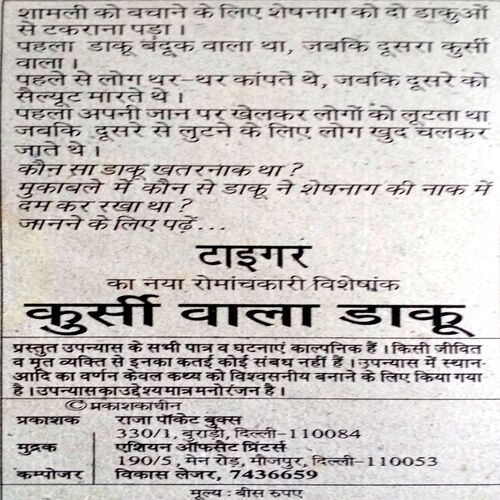 शामली को बचाने के लिए शेषनाग को दो डाकूओं
से टकराना पड़ा ।
पहला डाकू बंदूक वाला था, जबकि दूसरा कुर्सी
वाला ।
पहले से लोग थर-थर कांपते थे, जबकि दूसरे को
सैल्यूट मारते थे ।
पहला अपनी जान पर खेलकर लोगों को लूटता था
जबकि दूसरे से लुटने के लिए लोग खुद चलकर
जाते थे ।
कौन सा डाकू खतरनाक था ?
मुकाबले में कौन से डाकू ने शेषनाग की नाक में
दम कर रखा था ?
जानने के लिए पढ़ें...
टाइगर
का नया रोमांचकारी विशेषांक
कुर्सी वाला डाकू
प्रस्तुत उपन्यास के सभी पात्र व घटनाएं काल्पनिक हैं । किसी जीवित
व मृत व्यक्ति से इनका कतई कोई संबध नहीं हैं । उपन्यास में स्थान-
आदि का वर्णन केवल कथ्य को विश्वसनीय बनाने के लिए किया गया
है । उपन्यास का उद्देश्य मात्र मनोरंजन है ।
© प्रकाशकाधीन
प्रकाशक राजा पॉकेट बुक्स
330/1, बुराड़ी, दिल्ली-110084
मुद्रक एशियन ऑफसैट प्रिंटर्स
190/5, मेन रोड़, मौजपुर, दिल्ली-110053
कम्पोजर विकास लेजर, 7436659
मूल्य : बीस रुपए